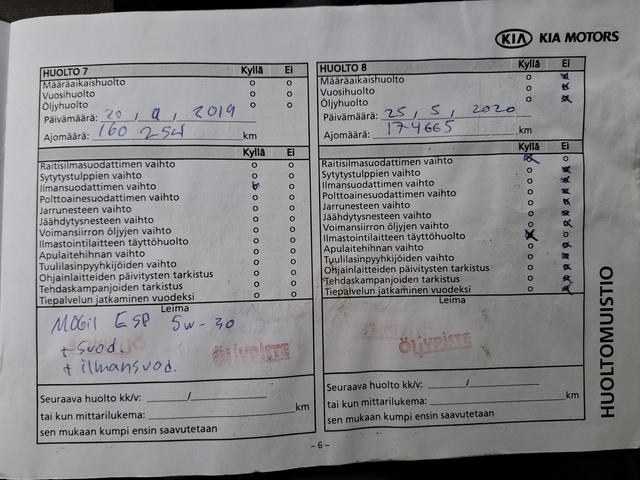 KIA KIA MOTORS
HUOLTO 7 Kyllä Ei
Määräaikaishuolto
Vuosihuolto
Öljyhuolto
Päivämäärä: 20, 9, 2019
Ajomäärä: 160 254 km
Kyllä Ei
Raitisilmasuodattimen vaihto
Sytytystulppien vaihto
Ilmansuodattimen vaihto
Polttoainesuodattimen vaihto
Jarrunesteen vaihto
Jäähdytysnesteen vaihto
Voimansiirron öljyjen vaihto
Ilmastointilaitteen täyttöhuolto
Apulaitehihnan vaihto
Tuulilasinpyyhkijöiden vaihto
Ohjainlaitteiden päivitysten tarkistus
Tehdaskampanjoiden tarkistus
Tiepalvelun jatkaminen vuodeksi
Leima
Mobil ESP 5w-30
+ suod.
+ ilmansuod.
ÖLJYPISTE
Seuraava huolto kk/v: /
tai kun mittarilukema: km
sen mukaan kumpi ensin saavutetaan
HUOLTO 8 Kyllä Ei
Määräaikaishuolto
Vuosihuolto
Öljyhuolto
Päivämäärä: 25, 5, 2020
Ajomäärä: 174665 km
Kyllä Ei
Raitisilmasuodattimen vaihto
Sytytystulppien vaihto
Ilmansuodattimen vaihto
Polttoainesuodattimen vaihto
Jarrunesteen vaihto
Jäähdytysnesteen vaihto
Voimansiirron öljyjen vaihto
Ilmastointilaitteen täyttöhuolto
Apulaitehihnan vaihto
Tuulilasinpyyhkijöiden vaihto
Ohjainlaitteiden päivitysten tarkistus
Tehdaskampanjoiden tarkistus
Tiepalvelun jatkaminen vuodeksi
Leima
ÖLJYPISTE
Seuraava huolto kk/v: /
tai kun mittarilukema: km
sen mukaan kumpi ensin saavutetaan
HUOLTOMUISTIO
- 6 -